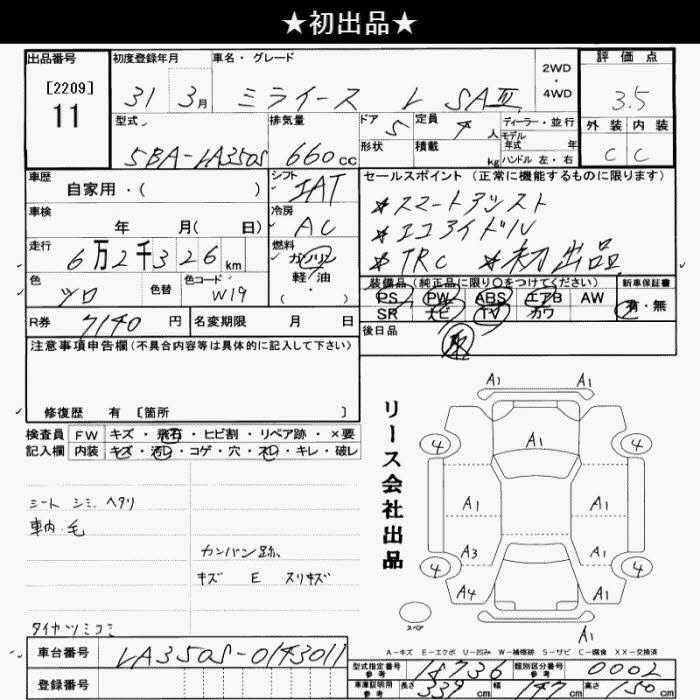 ★初出品★
出品番号 初度登録年月 車名・グレード 2WD・4WD 評価点
[2209]
11
31 3月 ミライース L SAⅢ 3.5
型式 排気量 ドア 定員 ディーラー・並行 外装 内装
5BA-LA350S 660cc 5 4人 モデル年式 年 C C
形状 積載 kg ハンドル 左・右
車歴 自家用・( ) シフト IAT セールスポイント(正常に機能するものに限ります)
車検 年 月( 日) 冷房 AC
*スマートアシスト
*エコアイドル
*TRC *初出品
走行 6万2千326km 燃料 ガソリン 軽油・( )
色 ツロ 色替 色コード W19
装備品(純正品に限り○をつけてください) 新車保証書
PS PW ABS エアB AW 有・無
SR ナビ TV カワ
R券 7140円 名変期限 月 日 後日品
注意事項申告欄(不具合内容等は具体的に記入して下さい)
修復歴 有 [箇所 ]
検査員 FW キズ・飛石・ヒビ割・リペア跡・×要
記入欄 内装 キズ・汚レ・コゲ・穴・スレ・キレ・破レ
シート シミ ヘタリ
車内 毛
カンバン跡
キズ E スリキズ
タイヤツミコミ
リース会社出品
A1 A1
4 A1 4
A1 A1
A3 A1
4 4
A4 A1
A1
スペア
A-キズ E-エクボ U-凹み W-補修跡 S-サビ C-腐食 XX-交換済
車台番号 LA350S-0143011
登録番号
型式指定番号 参考 18736 類別区分番号 参考 0002
車庫証明用 参考 長さ 339cm 幅 147cm 高さ 150cm